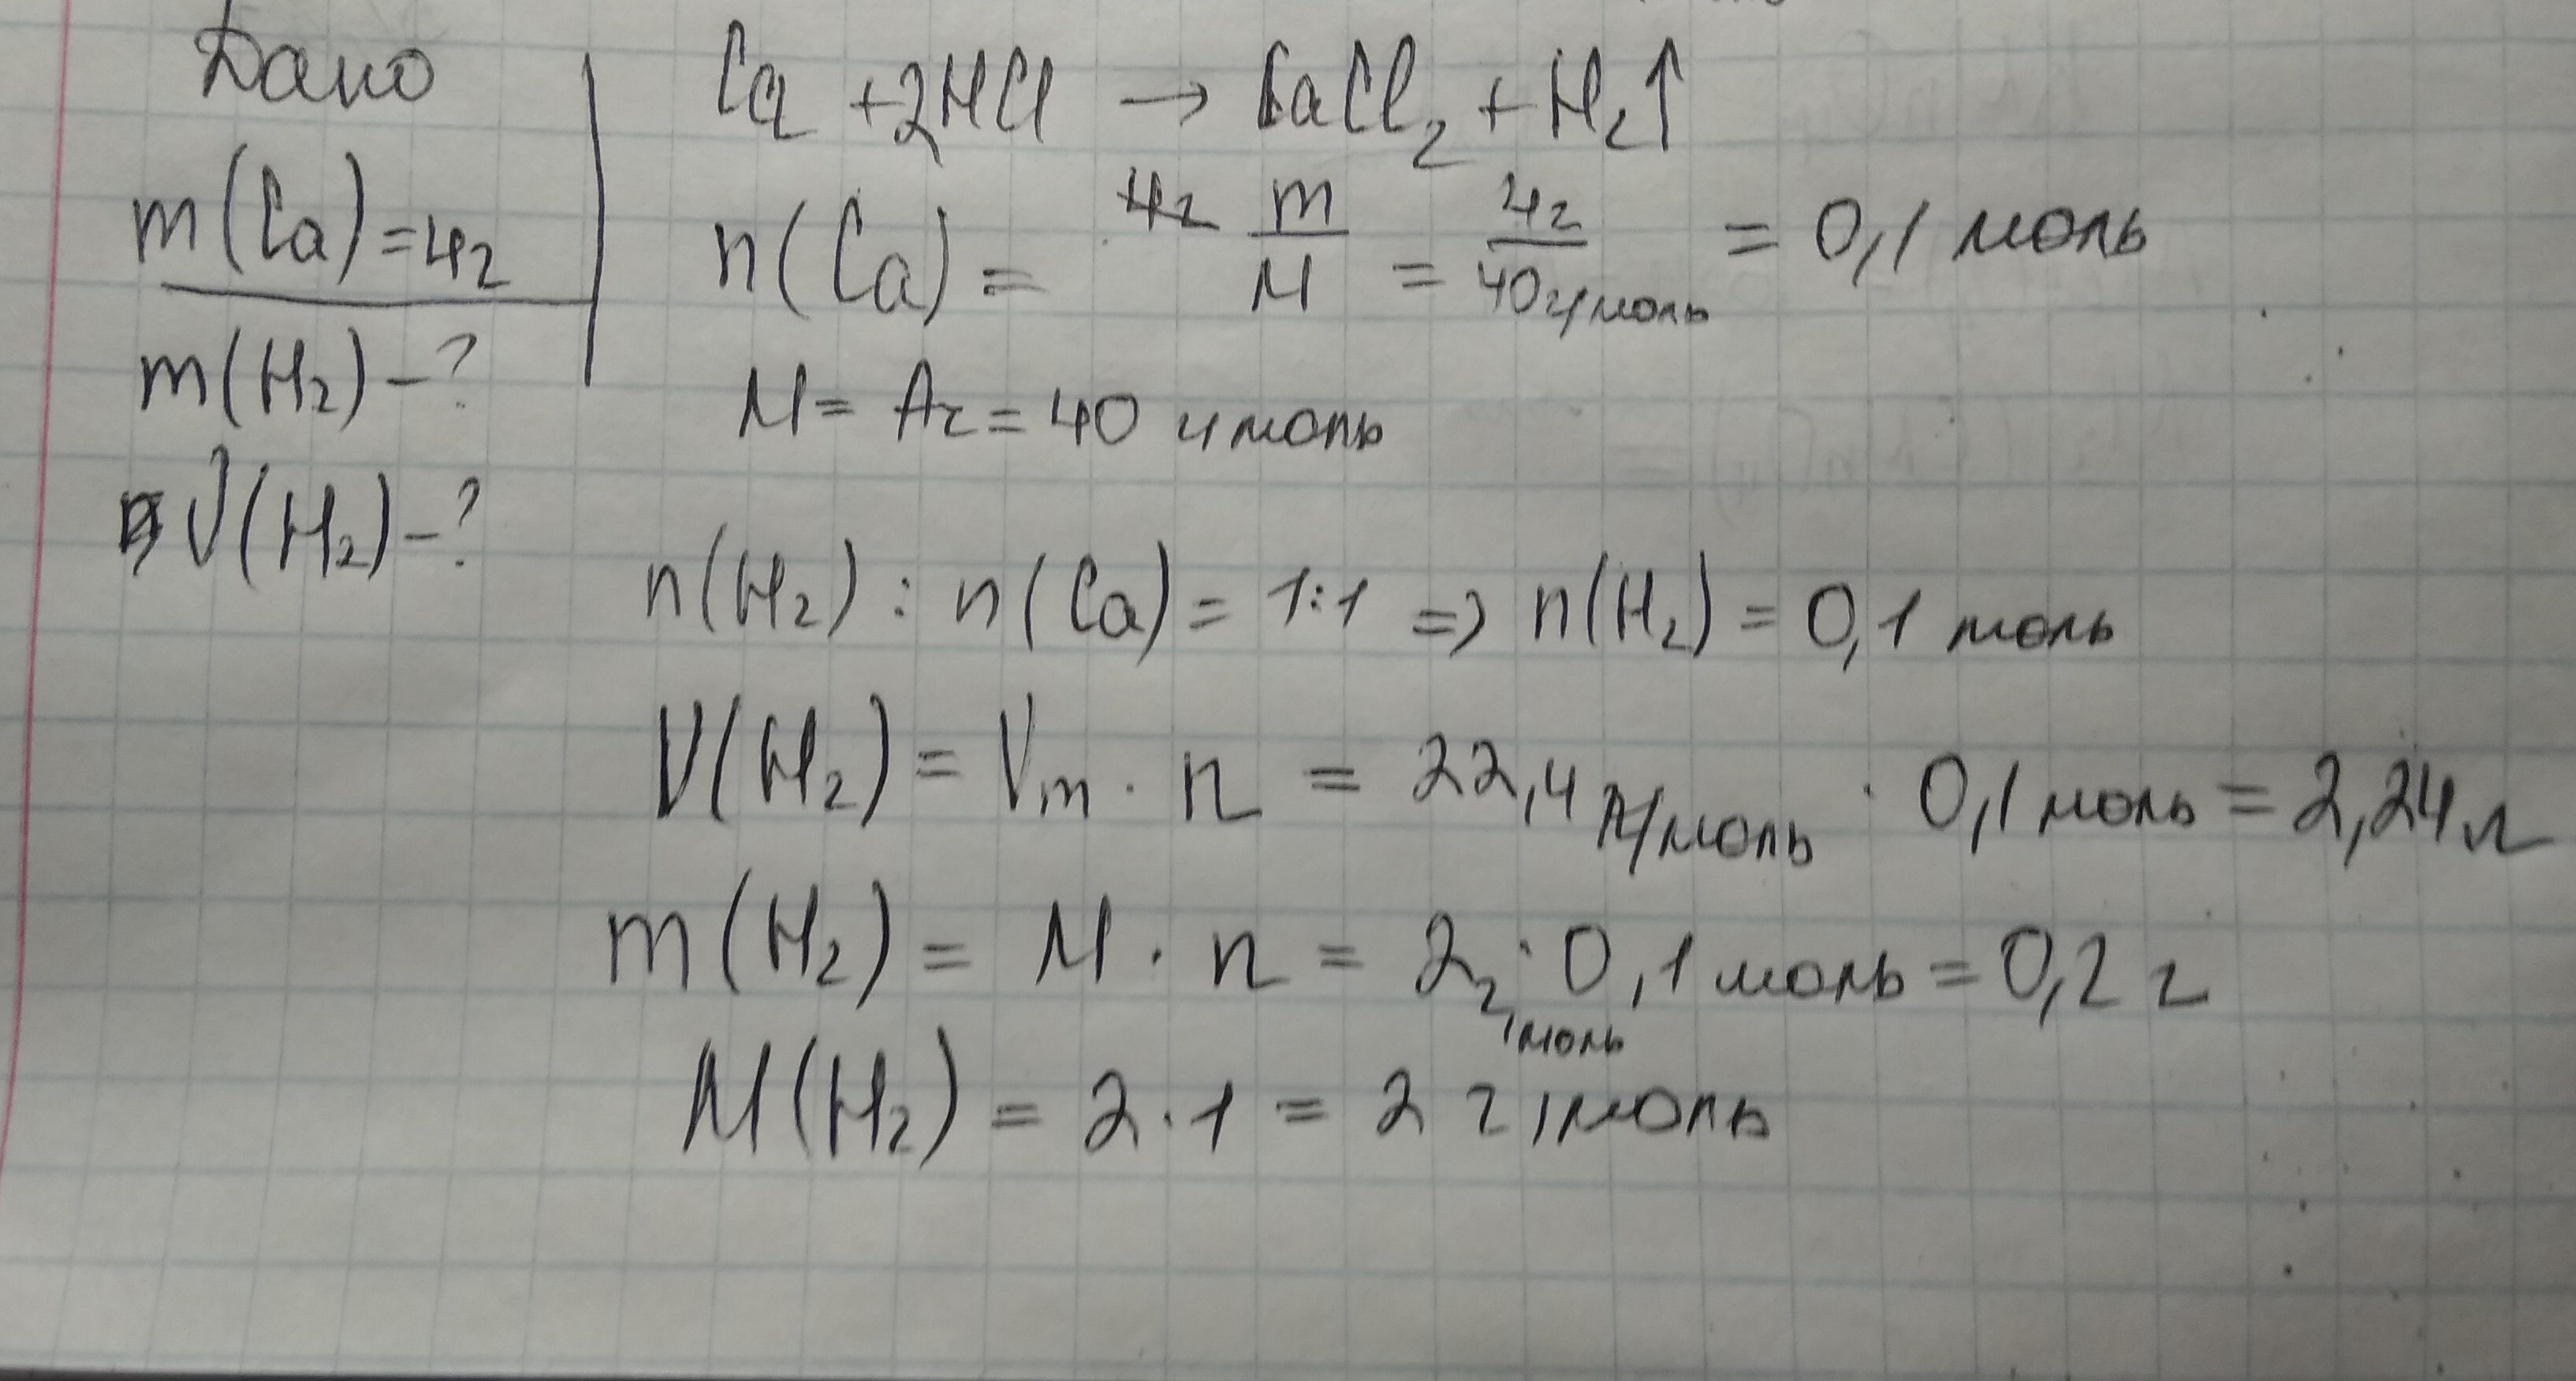 Дано
m(Ca)=4г
m(H₂)-?
V(H₂)-?
Ca +2HCl → CaCl₂ + H₂↑
n(Ca) = 4г m/M = 4г/40г/моль = 0,1 моль
M = Ar = 40 г/моль
n(H₂) : n(Ca) = 1:1 => n(H₂) = 0,1 моль
V(H₂) = Vm · n = 22,4 л/моль · 0,1 моль = 2,24 л
m(H₂) = M · n = 2 г/моль · 0,1 моль = 0,2 г
M(H₂) = 2 · 1 = 2 г/моль